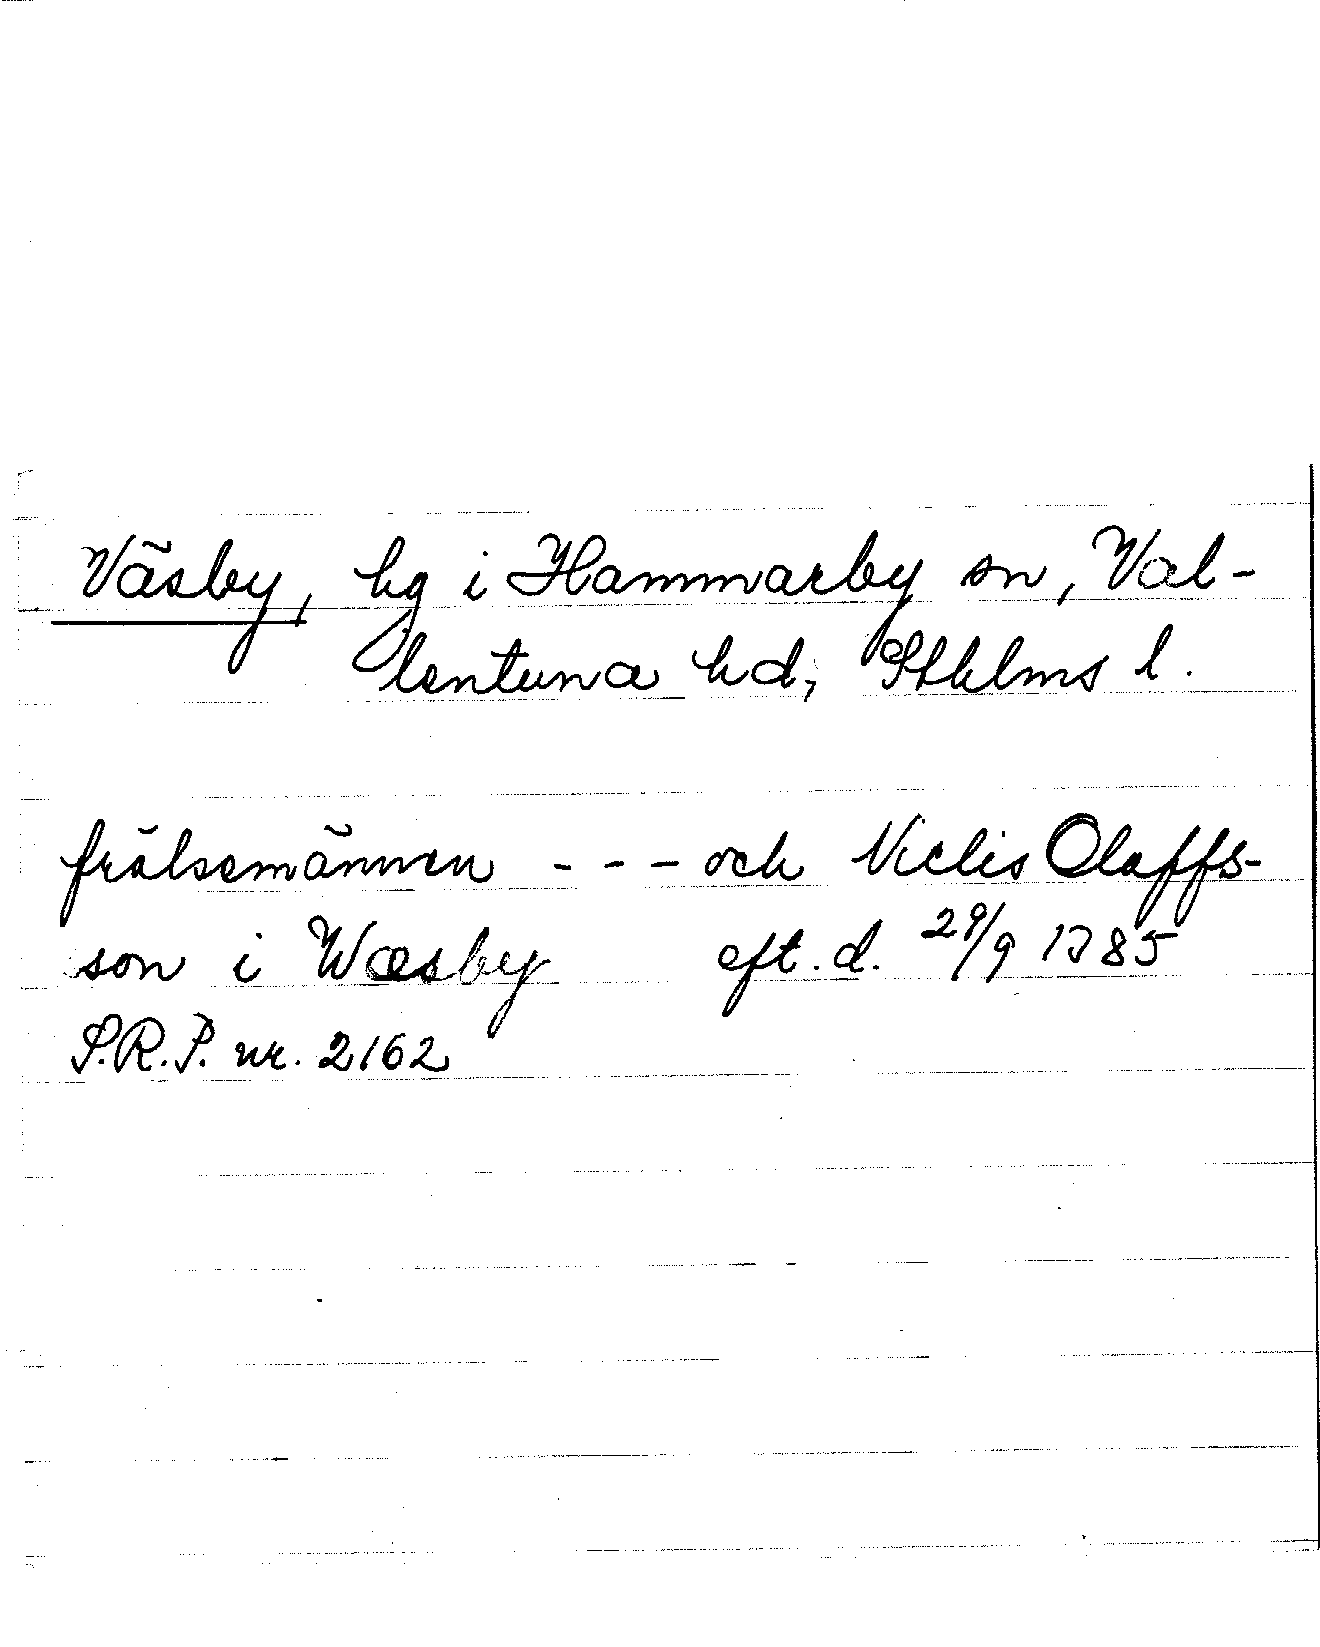 Väsby, hg i Hammarby sn, Val-
lentuna hd, Sthlms l.
frälsemännen - - - och Niclis Olaffs-
son i Wæsby eft. d. 29/9 1385
S.R.P. nr. 2162